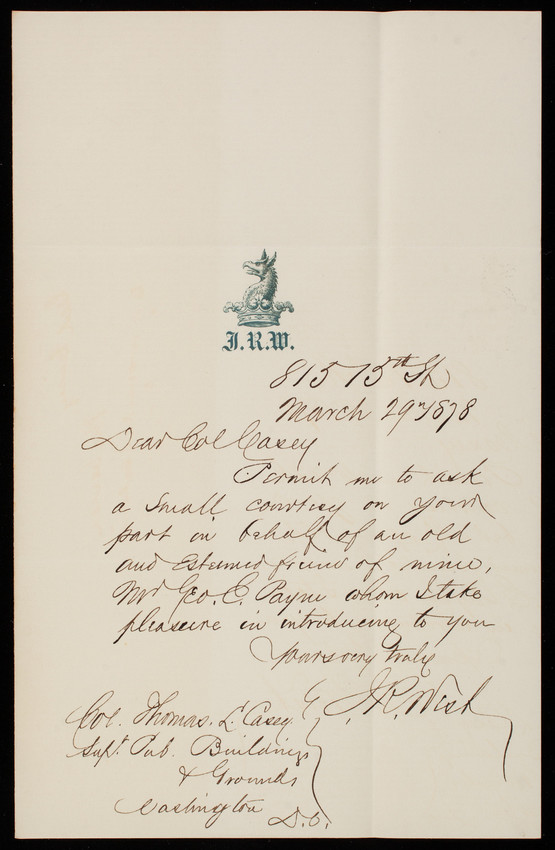 J.R.W.
815 15th St
March 29th/878
Dear Col Casey
Permit me to ask
a small courtesy on your
part in behalf of an old
and esteemed friend of mine,
Mr Geo. E. Payne whom I take
pleasure in introducing to you
Yours very truly
J.R. West
Col. Thomas. L. Casey
Supt. Pub. Buildings
& Grounds
Washington
D.C.